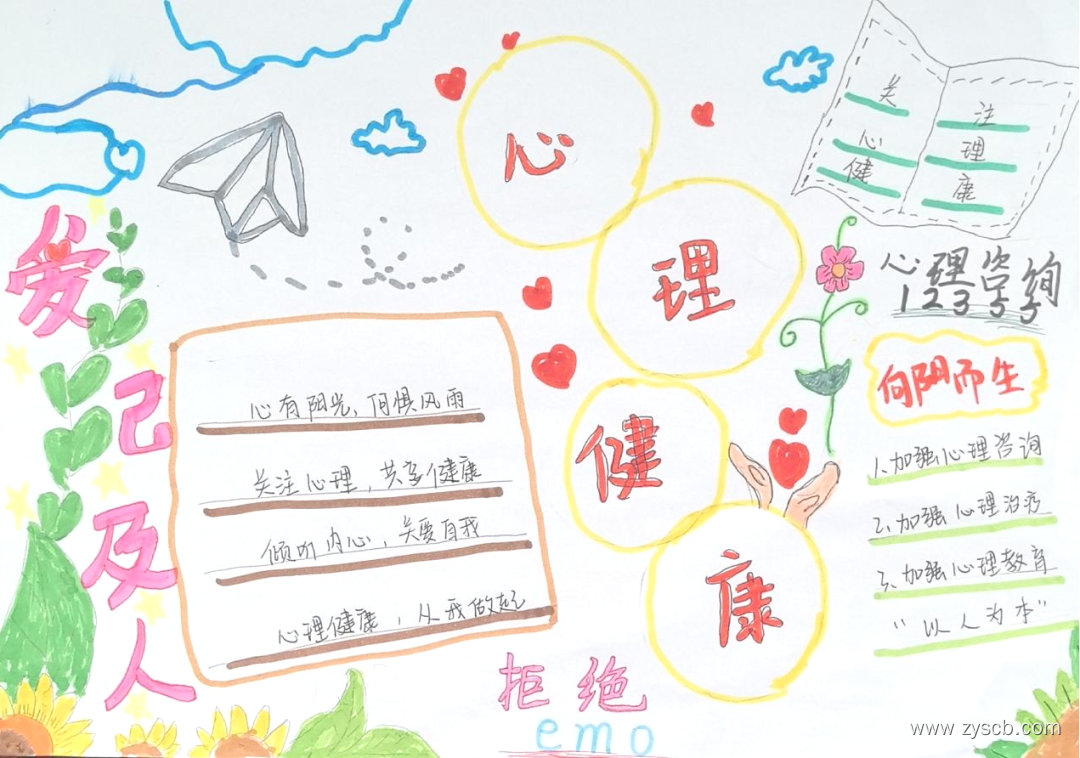 心
理
健
康
关注
心理
健康
心理咨询
12355
爱己及人
心有阳光，何惧风雨
关注心理，共享健康
倾听内心，关爱自我
心理健康，从我做起
向阴而生
1.加强心理咨询
2.加强心理治疗
3.加强心理教育
“以人为本”
拒绝
emo
www.zyscb.com